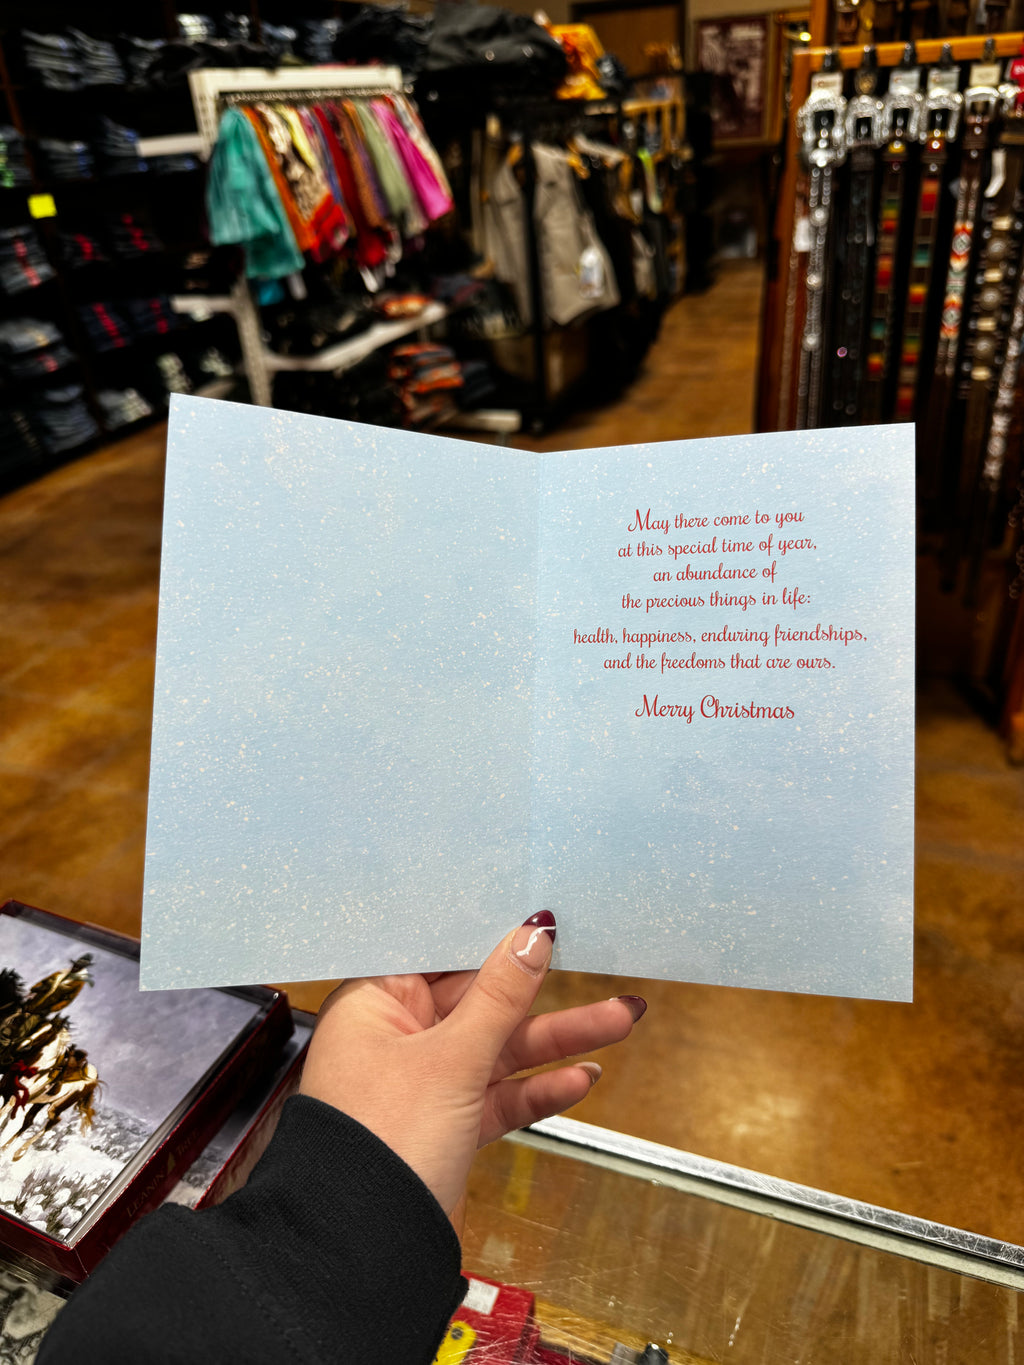 May there come to you
at this special time of year,
an abundance of
the precious things in life:
health, happiness, enduring friendships,
and the freedoms that are ours.
Merry Christmas
LEANIN TREE